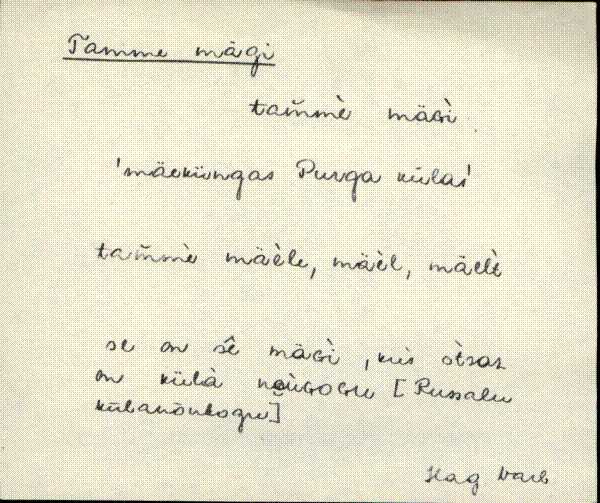 Tamme mägi
tam̆mè mäɢì
'mäeküngas Purga külas'
tam̆mè mäèle, mäèl, mäelt̀
se on sê mäɢì, kus òtsaz
on külà nõùɢoɢu [Russalu
külanõukogu]
Hag